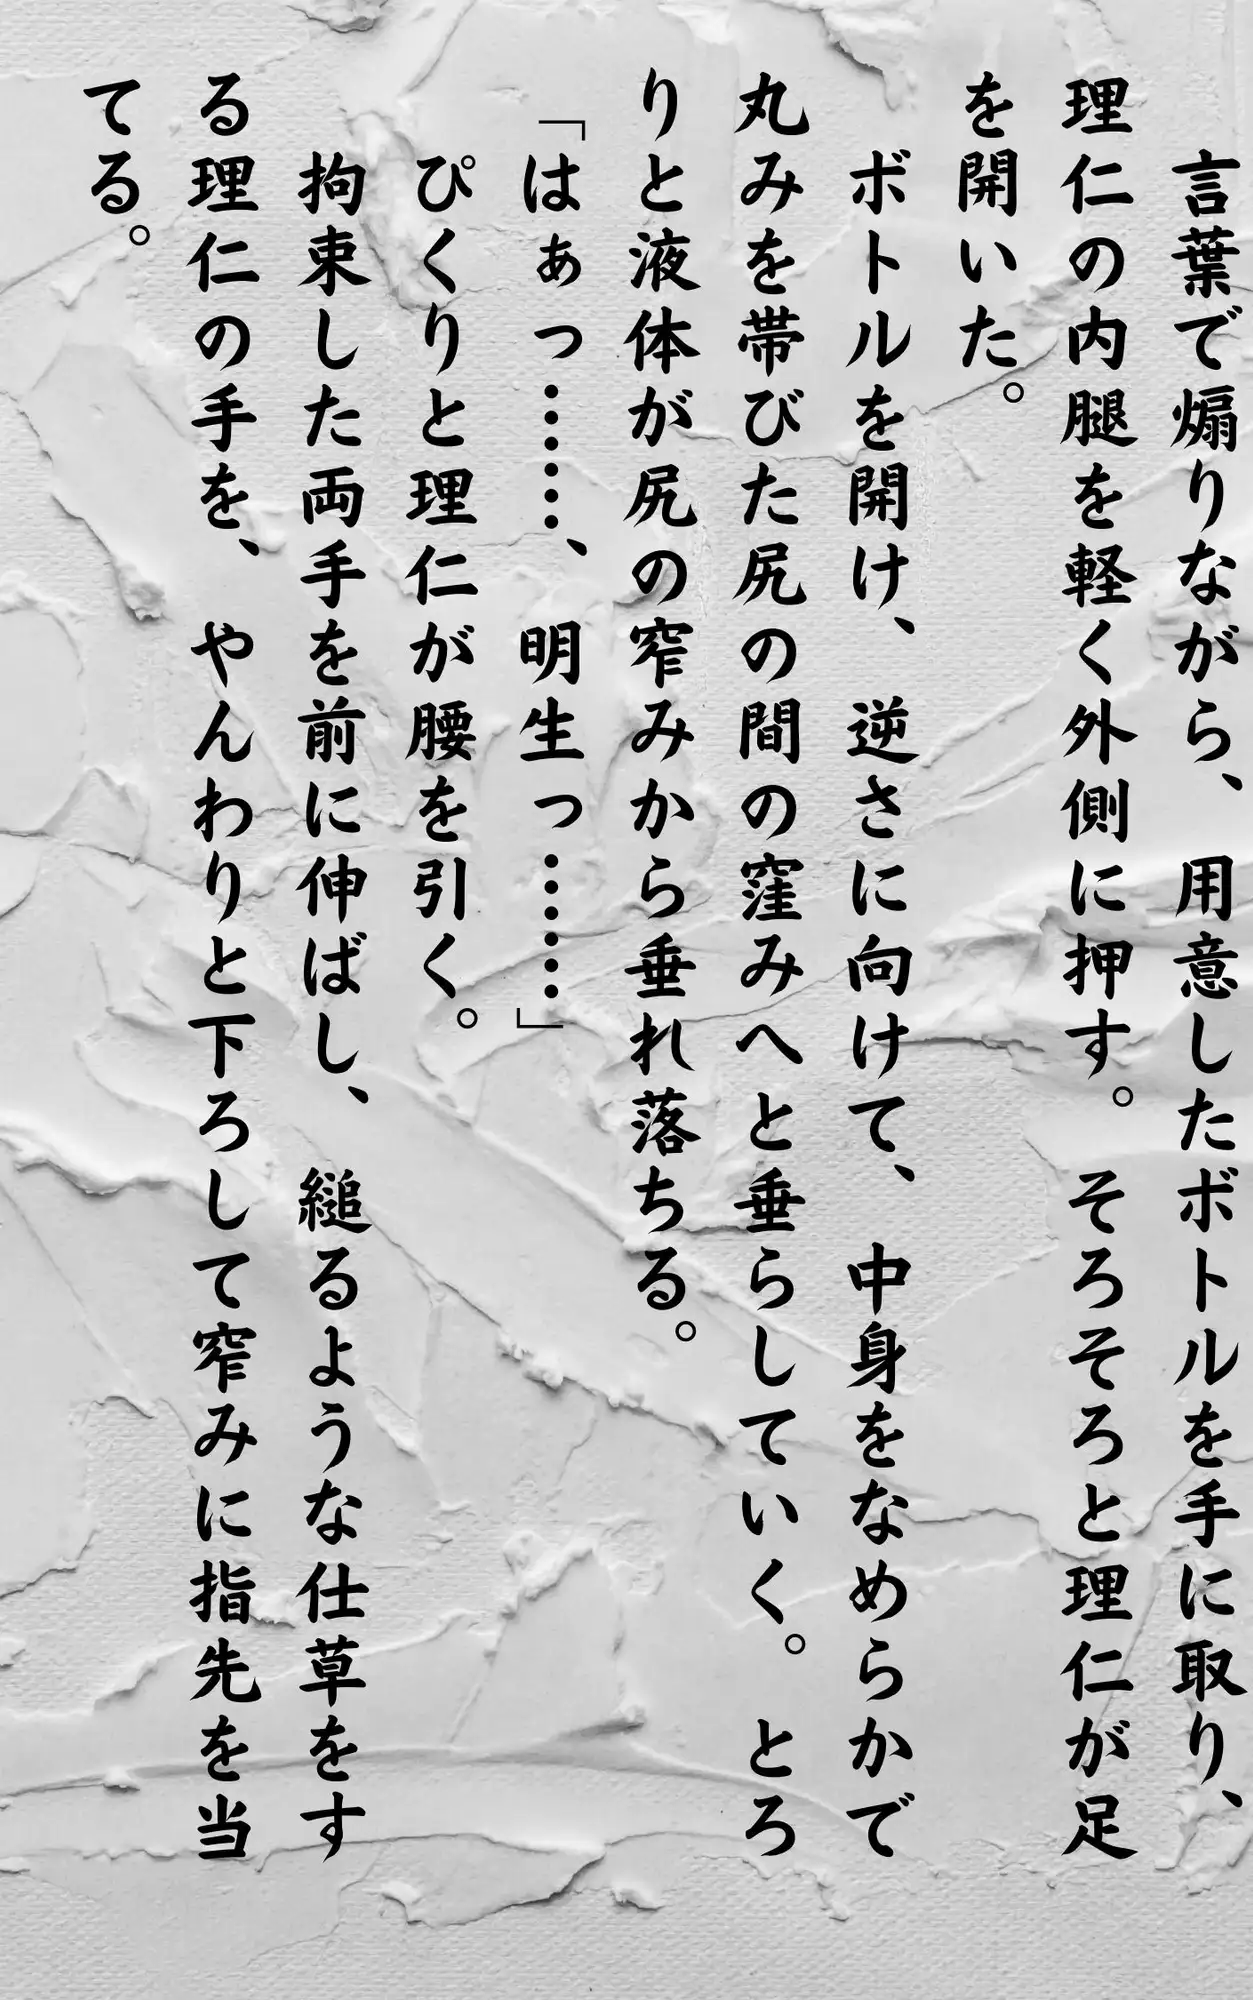 言葉で煽りながら、用意したボトルを手に取り、
理仁の内腿を軽く外側に押す。そろそろと理仁が足
を開いた。
ボトルを開け、逆さに向けて、中身をなめらかで
丸みを帯びた尻の間の窪みへと垂らしていく。とろ
りと液体が尻の窄みから垂れ落ちる。
「はぁっ……、明生っ……」
ぴくりと理仁が腰を引く。
拘束した両手を前に伸ばし、縋るような仕草をす
る理仁の手を、やんわりと下ろして窄みに指先を当
てる。